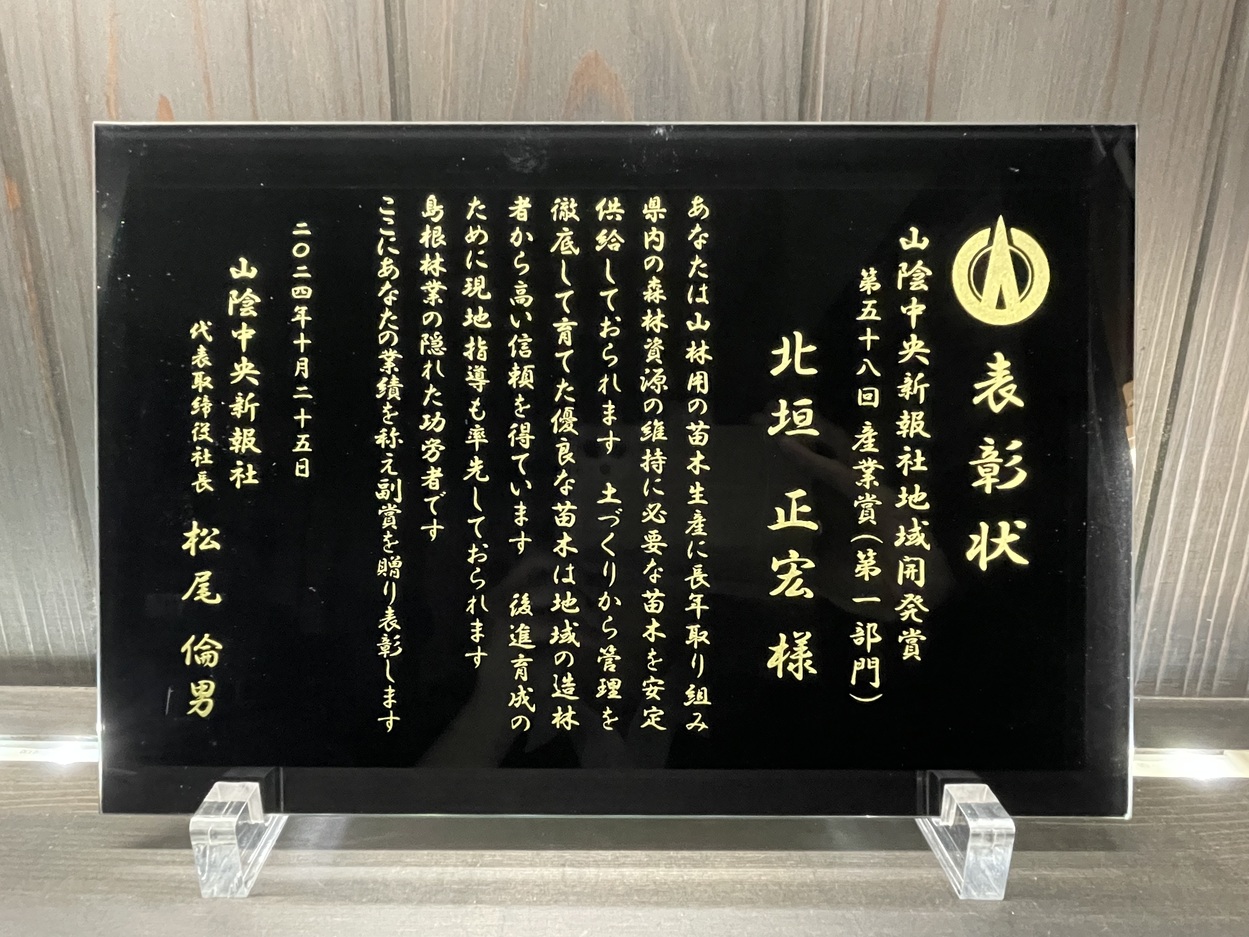 表彰状
山陰中央新報社地域開発賞
第五十八回 産業賞(第一部門)
北垣 正宏 様
あなたは山林用の苗木生産に長年取り組み
県内の森林資源の維持に必要な苗木を安定
供給しておられます 土づくりから管理を
徹底して育てた優良な苗木は地域の造林
者から高い信頼を得ています 後進育成の
ために現地指導も率先しておられます
島根林業の隠れた功労者です
ここにあなたの業績を称え副賞を贈り表彰します
二〇二四年十月二十五日
山陰中央新報社
代表取締役社長 松尾 倫男